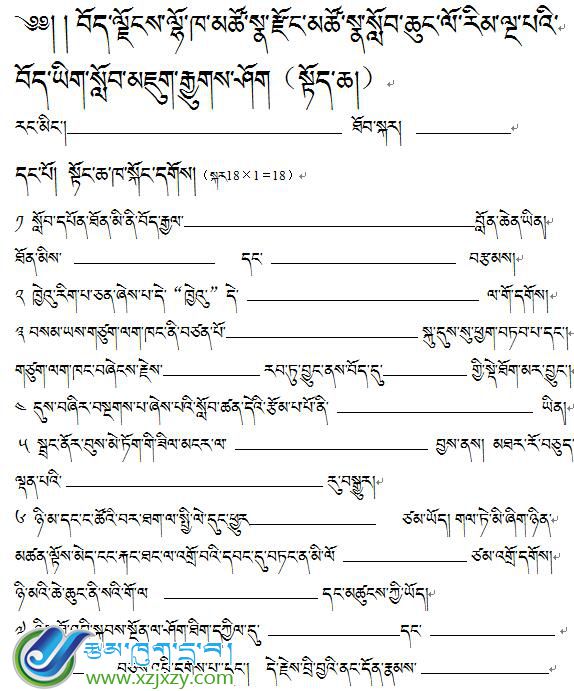 ༄༅།། བོད་ལྗོངས་ལྷོ་ཁ་མཚོ་སྣ་རྫོང་མཚོ་སྣ་སློབ་ཆུང་ལོ་རིམ་ལྔ་པའི་
བོད་ཡིག་སློབ་མཇུག་རྒྱུགས་ཤོག (སྟོད་ཆ།)
རང་མིང་། ཐོབ་སྐར།
དང་པོ། སྟོང་ཆ་ཁ་སྐོང་དགོས། (སྐར18×1=18)
༡ སློབ་དཔོན་ཐོན་མི་ནི་བོད་རྒྱལ་ བློན་ཆེན་ཡིན།
ཐོན་མིས་ དང་ བརྩམས།
༢ ཁྱེའུ་རིག་པ་ཅན་ཞེས་པ་དེ་ “ཁྱེའུ་” དེ་ ལ་གོ་དགོས།
༣ བསམ་ཡས་གཙུག་ལག་ཁང་ནི་བཙན་པོ་ སྐུ་དུས་སུ་ཕྱག་བཏབ་པ་དང་།
གཙུག་ལག་ཁང་བཞེངས་རྗེས་ རབ་ཏུ་བྱུང་ནས་བོད་དུ་ གྱི་སྡེ་ཐོག་མར་བྱུང་།
༤ དུས་བཞིར་བསྔགས་པ་ཞེས་པའི་སློབ་ཚན་དེའི་རྩོམ་པ་པོ་ནི་ ཡིན།
༥ སྦྲང་ནོར་བུས་མེ་ཏོག་གི་ཟིལ་མངར་ལ་ བྱས་ནས། མཐར་རོ་བཅུད་
ལྡན་པའི་ རུ་བསྒྱུར།
༦ ཉི་མ་དང་ང་ཚོའི་བར་ཐག་ལ་སྤྱི་ལེ་དུང་ཕྱུར་ ཙམ་ཡོད། གལ་ཏེ་མི་ཞིག་ཉིན་
མཚན་ལྟོས་མེད་ངང་རྐང་ཐང་ལ་འགྲོ་བའི་དབང་དུ་བཏང་ན་མི་ལོ་ ཙམ་འགྲོ་དགོས།
ཉི་མའི་ཆེ་ཆུང་ནི་སའི་གོ་ལ་ དང་མཚུངས་ཀྱི་ཡོད།
༧ སྐབས་སྔོན་ལ་ཤོག་ཐིག་དཀྱིལ་དུ་ དང་
དགོས་པ་དང་། དེ་རྗེས་བྲི་བྱའི་ནང་དོན་རྣམས་
www.xzjxzy.com